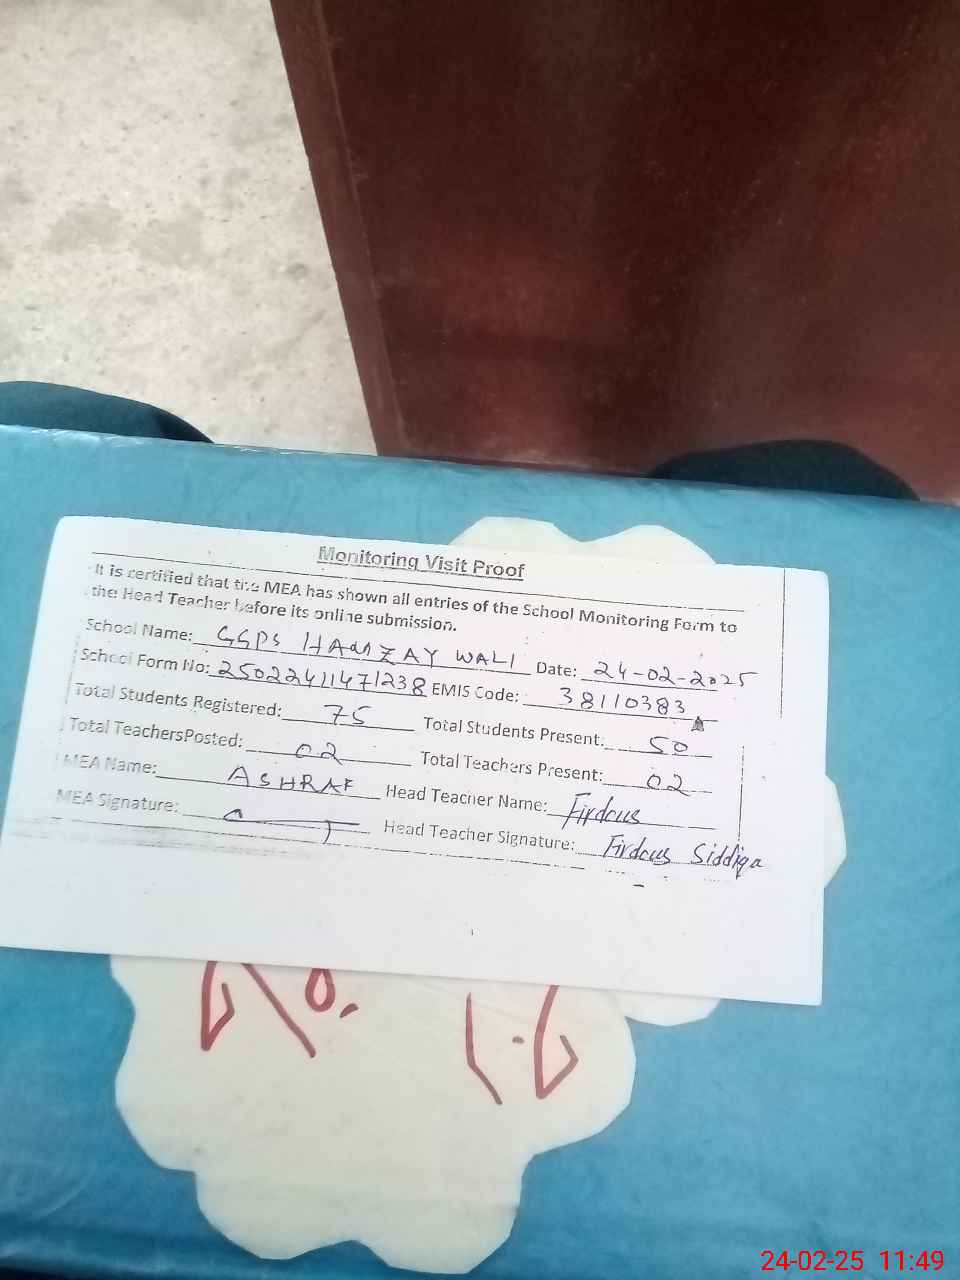 Monitoring Visit Proof
It is certified that the MEA has shown all entries of the School Monitoring Form to
the Head Teacher before its online submission.
School Name: GGPS HAMZAY WALI Date: 24-02-2025
School Form No: 25022411471238 EMIS Code: 38110383
Total Students Registered: 75 Total Students Present: 50
Total TeachersPosted: 02 Total Teachers Present: 02
MEA Name: ASHRAF Head Teacher Name: Firdous
MEA Signature: Head Teacher Signature: Firdous Siddiqa
24-02-25 11:49